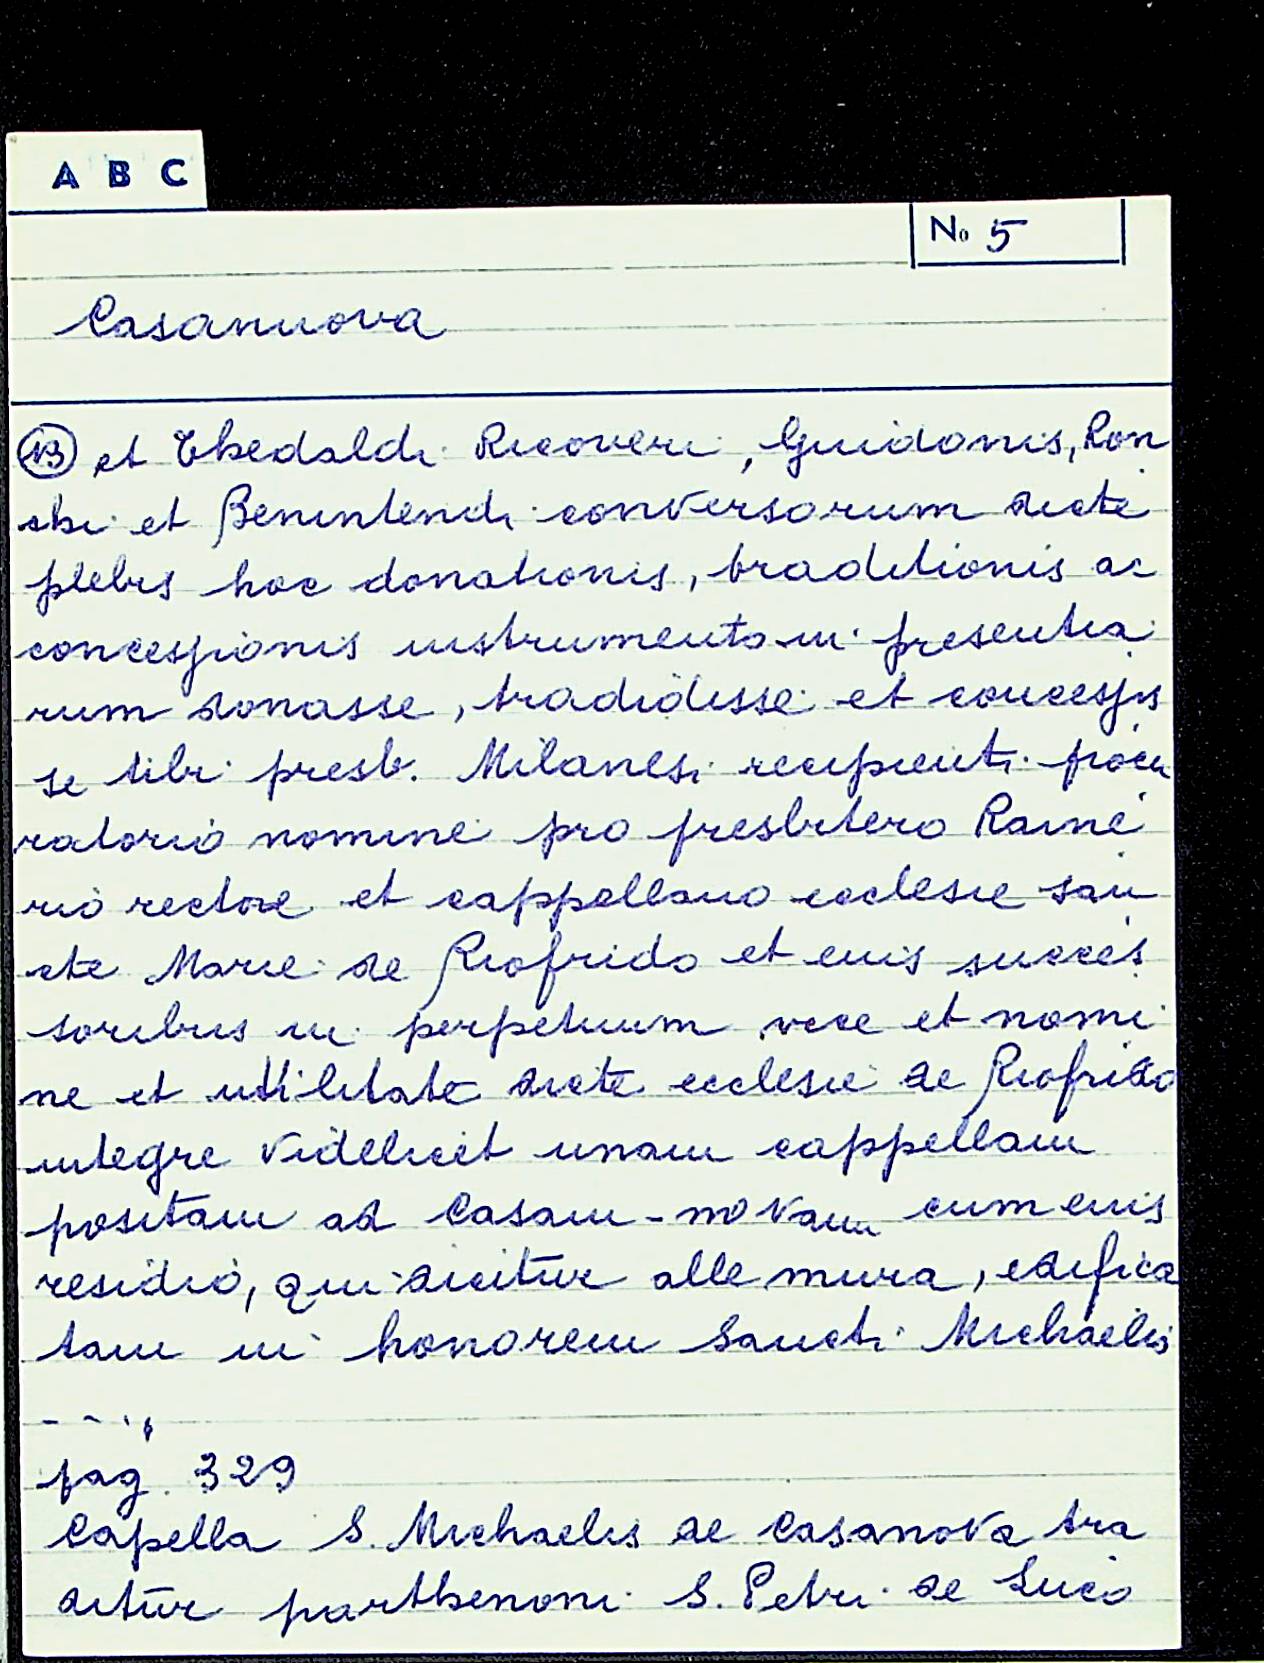 A B C
No 5
Casanuova
13 et Thedaldi Ricoveri, Guidonis, Ron
chi et Benintendi conversorum dicte
plebis hoc donationis, traditionis ac
concessionis instrumento in presentia
rum donasse, tradidisse et concessis
se tibi presb. Milanesi recipienti procu
ratorio nomine pro presbitero Raine
rio rectore et cappellano ecclesie san
cte Marie de Riofrido et eius succes
soribus in perpetuum vece et nomi
ne et utilitate dicte ecclesie de Riofrido
integre videlicet unam cappellam
positam ad Casam-novam cum euis
residio, qui dicitur alle mura, edifica
tam in honorem Sancti Michaelis
- - - ,
pag. 329
Capella S. Michaelis de Casanova tra
ditur parthenoni S. Petri de Luco